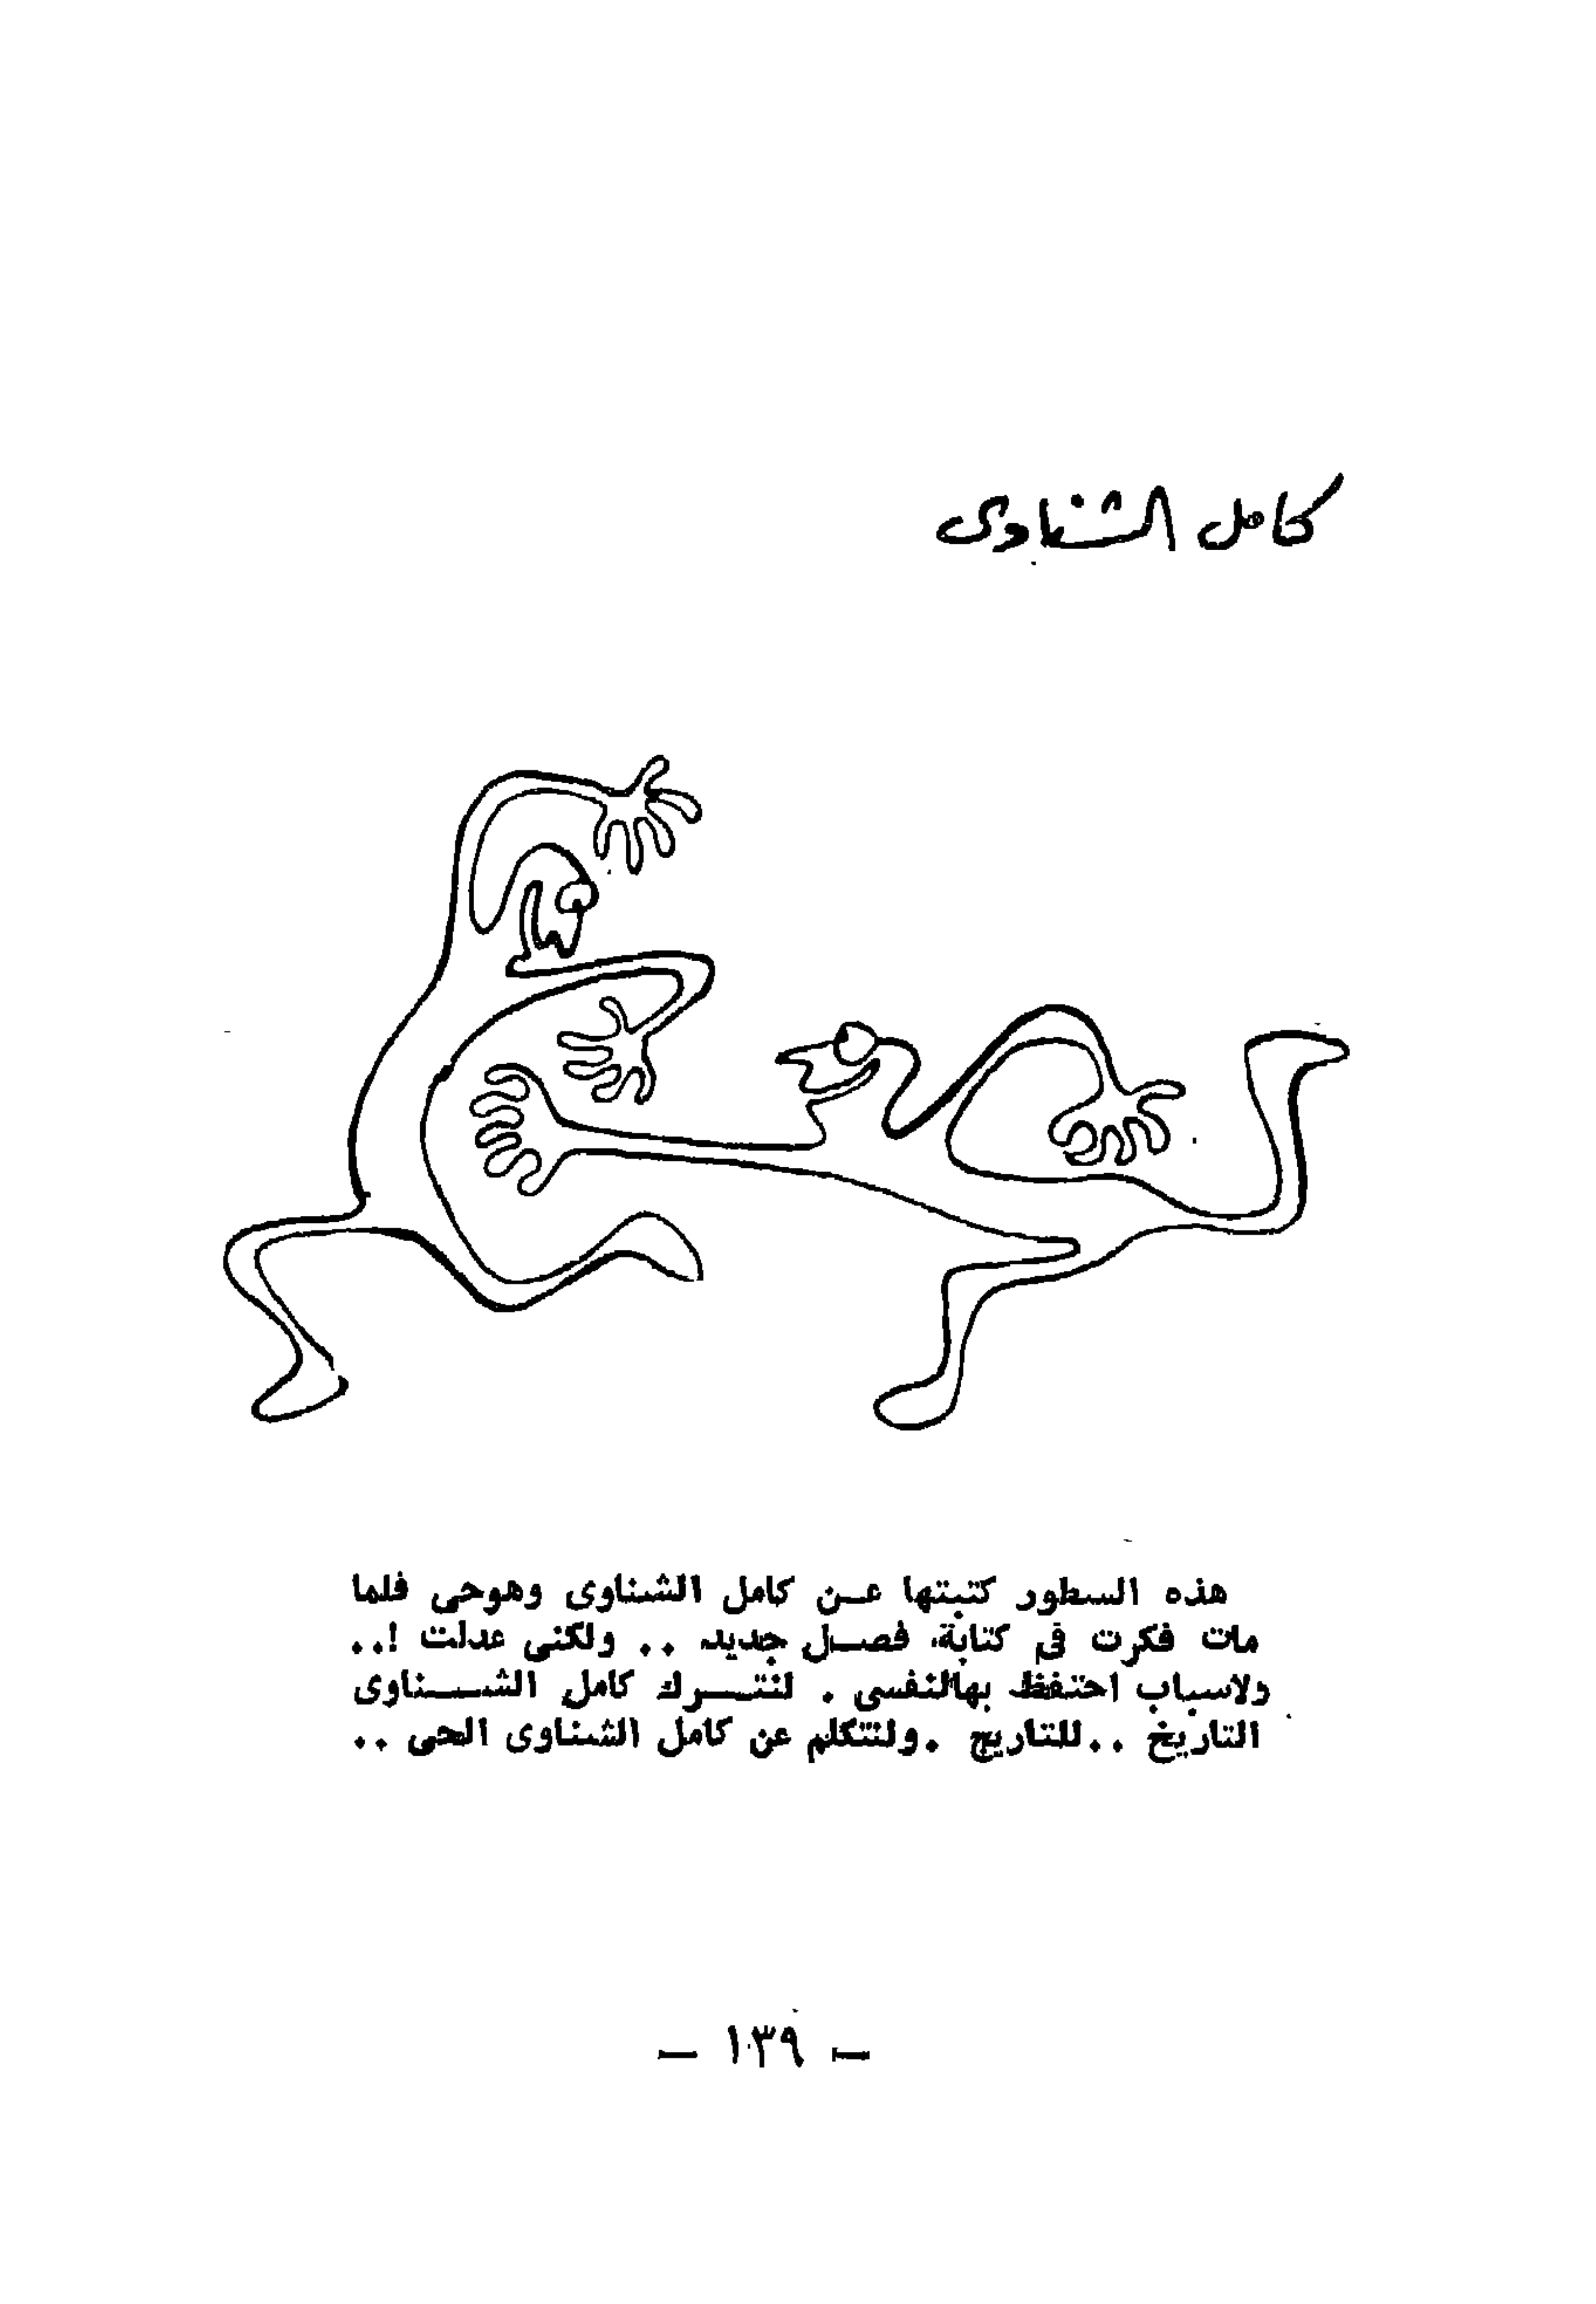 كامل الشناوى
هذه السطور كتبتها عن كامل الشناوى وهوحى فلما
مات فكرت فى كتابة فصل جديد .. ولكنى عدلت !..
ولاسباب احتفظ بهالنفسى . لنترك كامل الشناوى
التاريخ .. للتاريخ . ولنتكلم عن كامل الشناوى الحى ..
— ١٣٩ —